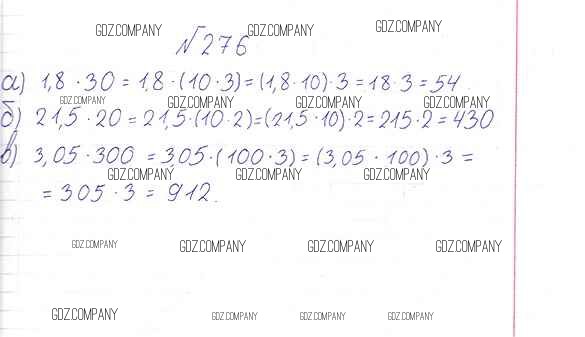 GDZ.COMPANY GDZ.COMPANY GDZ.COMPANY
№276
а) 1,8 · 30 = 1,8 · (10 · 3) = (1,8 · 10) · 3 = 18 · 3 = 54
GDZ.COMPANY GDZ.COMPANY GDZ.COMPANY GDZ.COMPANY
б) 21,5 · 20 = 21,5 · (10 · 2) = (21,5 · 10) · 2 = 215 · 2 = 430
в) 3,05 · 300 = 3,05 · (100 · 3) = (3,05 · 100) · 3 =
GDZ.COMPANY GDZ.COMPANY GDZ.COMPANY
= 305 · 3 = 912.
GDZ.COMPANY GDZ.COMPANY GDZ.COMPANY GDZ.COMPANY
GDZ.COMPANY GDZ.COMPANY GDZ.COMPANY GDZ.COMPANY